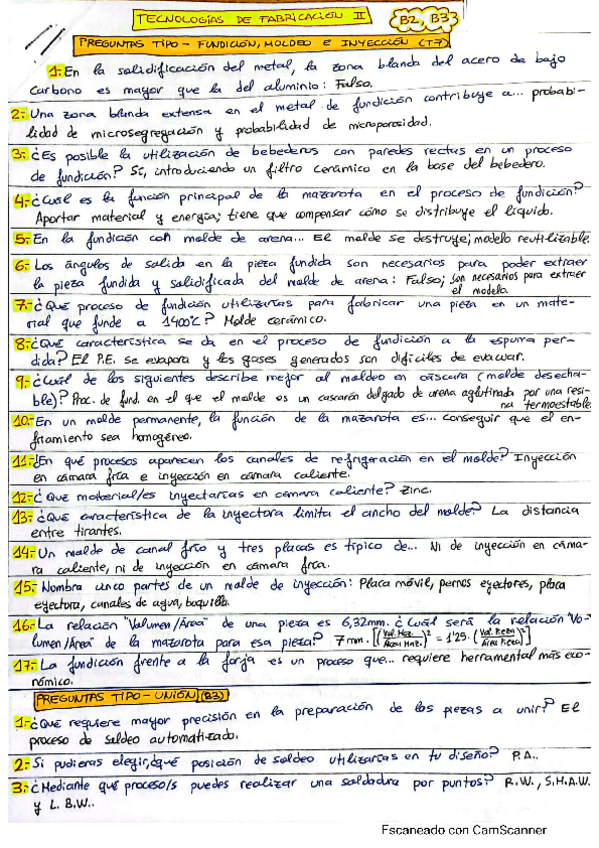 TECNOLOGÍAS DE FABRICACIÓN II
B2, B3
PREGUNTAS TIPO - FUNDICIÓN, MOLDEO E INYECCIÓN (T7)
1.- En la solidificación del metal, la zona blanda del acero de bajo
Carbono es mayor que la del aluminio: Falso.
2.- Una zona blanda extensa en el metal de fundición contribuye a... probabi-
lidad de microsegregación y probabilidad de microporosidad.
3.- ¿Es posible la utilización de bebederos con paredes rectas en un proceso
de fundición? Sí, introduciendo un filtro cerámico en la base del bebedero.
4.- ¿Cuál es la función principal de la mazarota en el proceso de fundición?
Aportar material y energía; tiene que compensar cómo se distribuye el líquido.
5.- En la fundición con molde de arena... El molde se destruye; modelo reutilizable.
6.- Los ángulos de salida en la pieza fundida son necesarios para poder extraer
la pieza fundida y solidificada del molde de arena: Falso; son necesarios para extraer
el modelo.
7.- ¿Qué proceso de fundición utilizarías para fabricar una pieza en un mate-
rial que funde a 1400°C? Molde cerámico.
8.- ¿Qué característica se da en el proceso de fundición a la espuma per-
dida? El P.E. se evapora y los gases generados son difíciles de evacuar.
9.- ¿Cuál de los siguientes describe mejor al moldeo en cáscara (molde desecha-
ble)? Proc. de fund. en el que el molde es un cascarón delgado de arena aglutinada por una resi-
na termoestable.
10.- En un molde permanente, la función de la mazarota es... conseguir que el en-
friamiento sea homogéneo.
11.- ¿En qué procesos aparecen los canales de refrigeración en el molde? Inyección
en cámara fría e inyección en cámara caliente.
12.- ¿Qué material/es inyectarías en cámara caliente? Zinc.
13.- ¿Qué característica de la inyectora limita el ancho del molde? La distancia
entre tirantes.
14.- Un molde de canal frío y tres placas es típico de... Ni de inyección en cáma-
ra caliente, ni de inyección en cámara fría.
15.- Nombra cinco partes de un molde de inyección: Placa móvil, pernos eyectores, placa
eyectora, canales de agua, boquilla.
16.- La relación "Volumen/Área" de una pieza es 6,32mm. ¿Cuál será la relación "Vo-
lumen/Área" de la mazarota para esa pieza? 7mm. [(Vol. Maz./Área Maz.)² = 1'25 · (Vol. Pieza/Área Pieza)²]
17.- La fundición frente a la forja es un proceso que... requiere herramental más eco-
nómico.
PREGUNTAS TIPO - UNIÓN (B3)
1.- ¿Qué requiere mayor precisión en la preparación de las piezas a unir? El
proceso de soldeo automatizado.
2.- Si pudieras elegir, ¿qué posición de soldeo utilizarías en tu diseño? P.A..
3.- ¿Mediante qué proceso/s puedes realizar una soldadura por puntos? R.W., S.M.A.W.
y L.B.W..
Escaneado con CamScanner